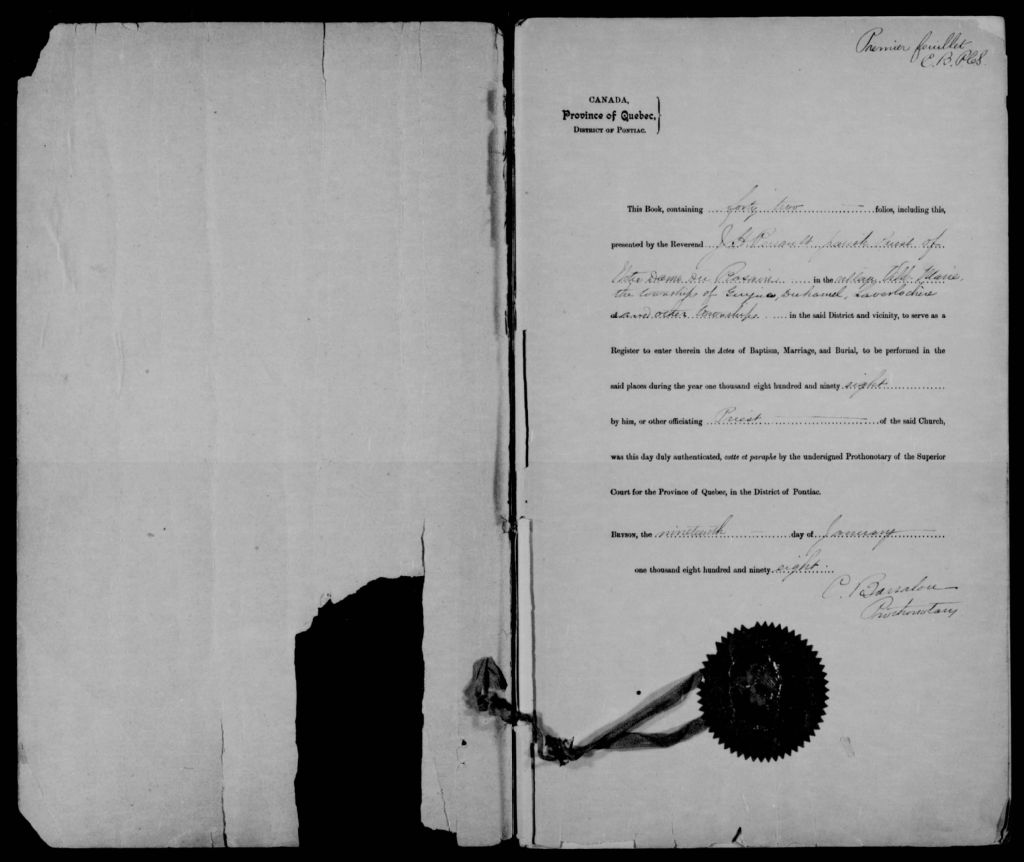 Premier feuillet
C. B. P.C.S.
CANADA,
Province of Quebec,
DISTRICT OF PONTIAC.
This Book, containing forty two folios, including this,
presented by the Reverend J. parish Priest of
Notre Dame Du Rosaire in the village Ville Marie,
the townships of Guigues, Duhamel, Laverlochère
of and other townships in the said District and vicinity, to serve as a
Register to enter therein the Actes of Baptism, Marriage, and Burial, to be performed in the
said places during the year one thousand eight hundred and ninety eight
by him, or other officiating Priest of the said Church,
was this day duly authenticated, cotte et paraphe by the undersigned Prothonotary of the Superior
Court for the Province of Quebec, in the District of Pontiac.
BRYSON, the nineteenth day of January
one thousand eight hundred and ninety eight.
C. Barsalou
Prothonotary